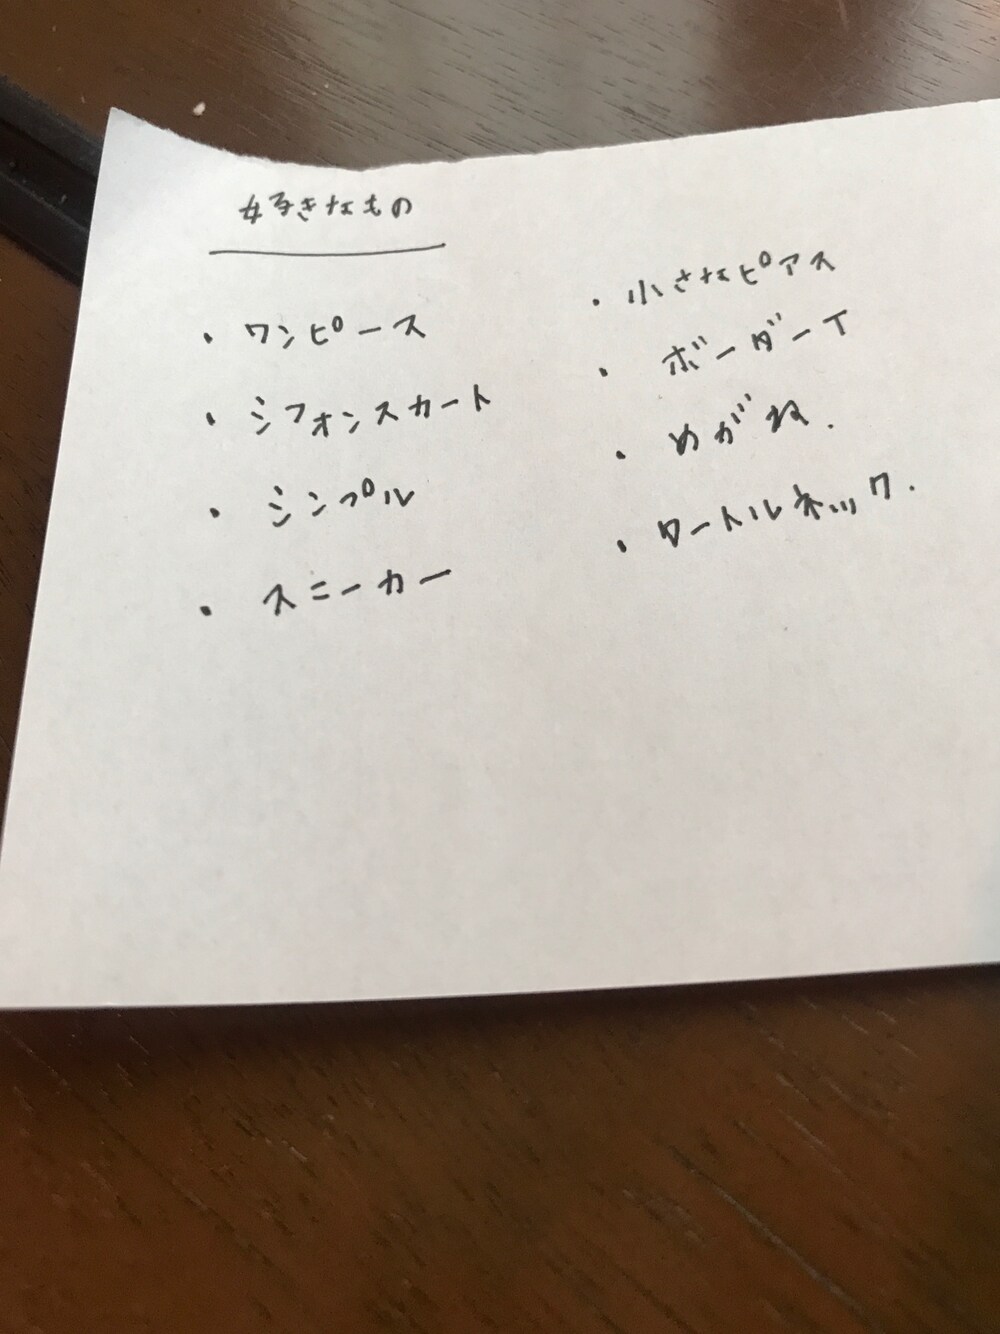 好きなもの
・ワンピース
・シフォンスカート
・シンプル
・スニーカー
・小さなピアス
・ボーダーT
・めがね.
・タートルネック.